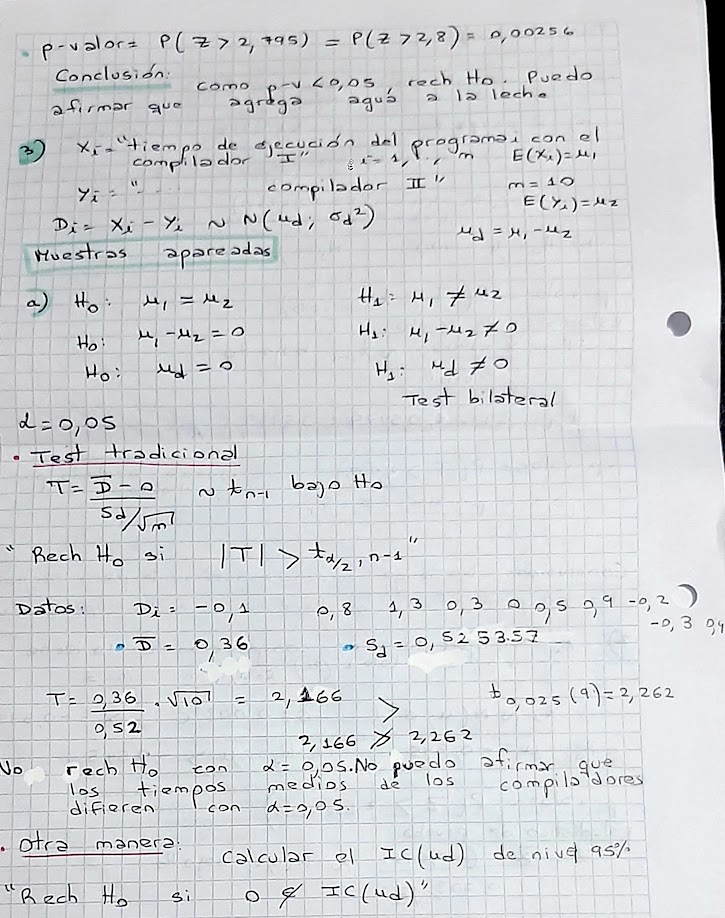 • p-valor = P(Z > 2,795) = P(Z > 2,8) = 0,00256
Conclusión: como p-v < 0,05, rech Ho. Puedo
afirmar que agrega agua a la leche
3) Xi = "tiempo de ejecución del programa i con el
compilador I" i = 1, ..., m E(Xi) = μ1
Yi = " ... compilador II" m = 10
E(Yi) = μ2
Di = Xi - Yi ~ N(μd; σd²)
μd = μ1 - μ2
Muestras apareadas
a) Ho: μ1 = μ2 H1: μ1 ≠ μ2
Ho: μ1 - μ2 = 0 H1: μ1 - μ2 ≠ 0
Ho: μd = 0 H1: μd ≠ 0
Test bilateral
α = 0,05
• Test tradicional
T = (D̄ - 0) / (Sd/√n) ~ tn-1 bajo Ho
"Rech Ho si |T| > tα/2, n-1"
Datos: Di = -0,1 0,8 1,3 0,3 0 0,5 0,9 -0,2
-0,3 0,4
• D̄ = 0,36 • Sd = 0,525357
T = 0,36/0,52 . √10 = 2,166 > t0,025 (9) = 2,262
2,166 ≯ 2,262
No rech Ho con α = 0,05. No puedo afirmar que
los tiempos medios de los compiladores
difieren con α = 0,05.
• Otra manera: calcular el IC(μd) de nivel 95%
"Rech Ho si 0 ∉ IC(μd)"